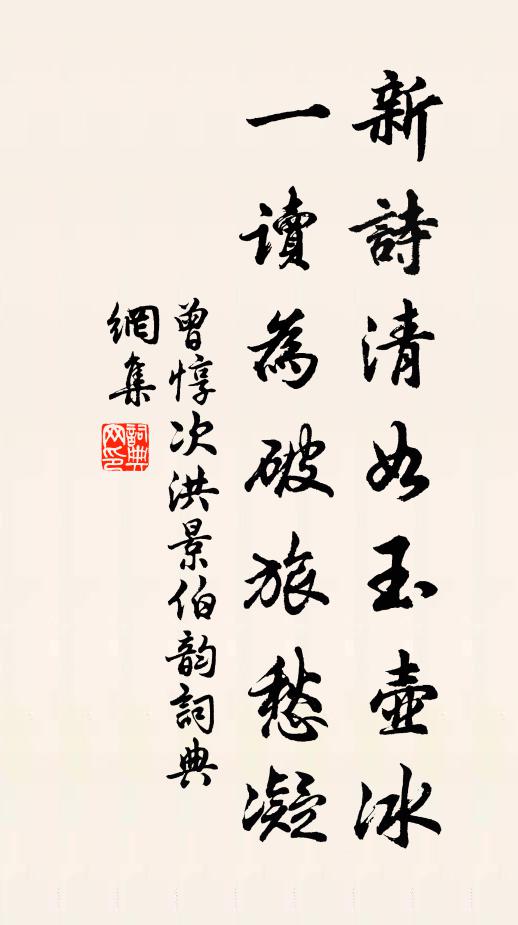 新詩清如玉壺冰
一讀為破旅愁凝
曾惇次洪景伯韵詞典
網集
詞典
网印